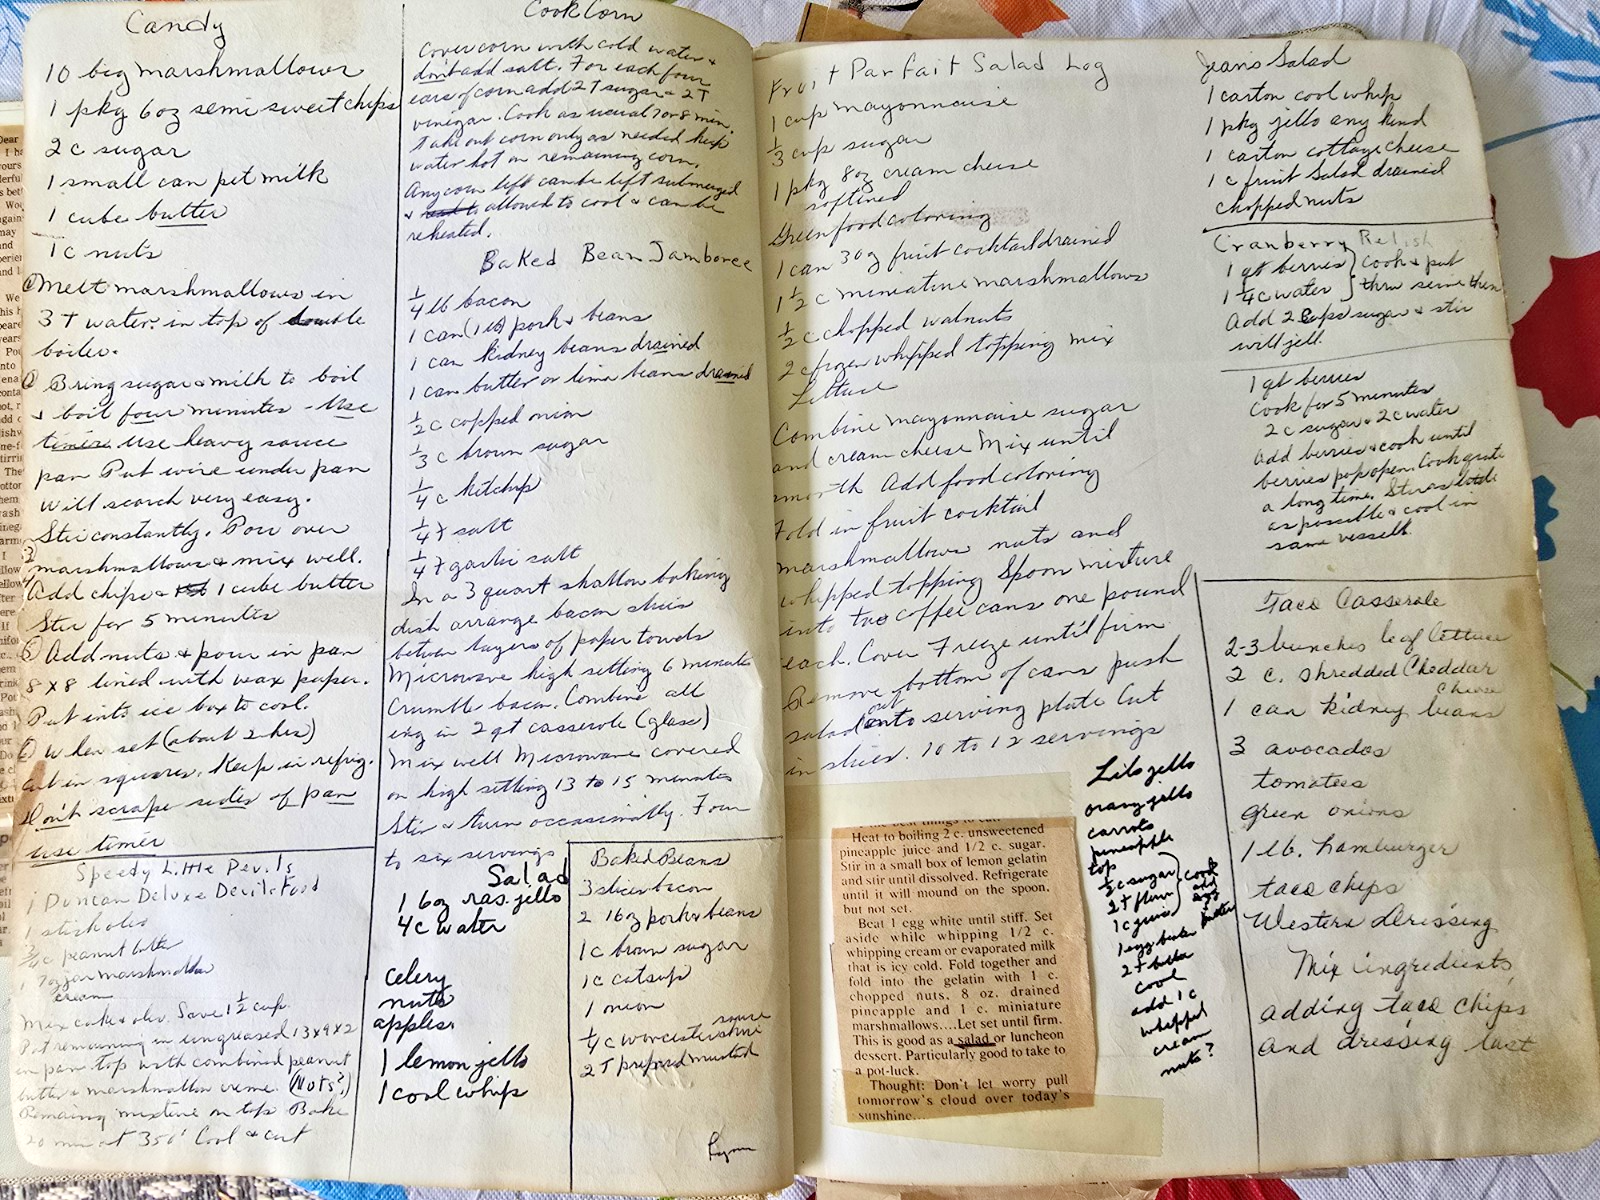 Candy
10 big marshmallows
1 pkg 6oz semi sweet chips
2 c sugar
1 small can pet milk
1 cube butter
1 c nuts
① Melt marshmallows in
3 T water in top of double
boiler.
② Bring sugar & milk to boil
& boil four minutes - Use
timer. Use heavy sauce
pan Put wire under pan
will scorch very easy.
Stir constantly. Pour over
③
marshmallows & mix well.
4 Add chips & 1 cube butter
Stir for 5 minutes
⑤ Add nuts & pour in pan
8 x 8 lined with wax paper.
Put into ice box to cool.
⑥ When set (about 2 hrs)
cut in squares. Keep in refrig.
Don't scrape sides of pan
use timer
Speedy Little Devils
1 Duncan Deluxe Devils Food
1 stick oleo
3/4 c peanut butter
1 7oz jar marshmallow
cream
Mix cake & oleo. Save 1 1/2 cup
Put remaining in ungreased 13 x 9 x 2
in pan. top with combined peanut
butter & marshmallow creme. (Nuts?)
Remaing mixture on top Bake
20 min at 350° Cool & cut
Cook Corn
Cover corn with cold water &
don't add salt. For each four
ears of corn add 2 T sugar & 2 T
vinegar. Cook as usual 7 or 8 min.
Take out corn only as needed keep
water hot on remaining corn.
Any corn left can be left submerged
& to allowed to cool & can be
reheated.
Baked Bean Jamboree
1/4 lb bacon
1 can (1 lb) pork & beans
1 can kidney beans drained
1 can butter or lima beans drained
1/2 c copped onion
1/3 c brown sugar
1/4 c ketchup
1/4 t salt
1/4 t garlic salt
In a 3 quart shallow baking
dish arrange bacon slices
between layers of paper towels
Microwave high setting 6 minutes
Crumble bacon. Combine all
ing in 2 qt casserole (glass)
Mix well Microwave covered
on high setting 13 to 15 minutes
Stir & turn occasionally. Four
to six servings
Salad
1 6oz ras. jello
4 c water
celery
nuts
apples
1 lemon jello
1 cool whip
Baked Beans
3 slices bacon
2 16oz pork & beans
1 c brown sugar
1 c catsup
1 onion
1/4 c worcestershire sauce
2 T prepared mustard
Fruit Parfait Salad Log
1 cup mayonnaise
1/3 cup sugar
1 pkg 8oz cream cheese
softened
Green food coloring
1 can 30z fruit cocktail drained
1 1/2 c miniature marshmallows
1/2 c chopped walnuts
2 c frozen whipped topping mix
Lettuce
Combine mayonnaise sugar
and cream cheese Mix until
smooth Add food coloring
Fold in fruit cocktail
marshmallows nuts and
whipped topping Spoon mixture
into two coffee cans one pound
each. Cover Freeze until firm
Remove bottom of cans push
salad out onto serving plate Cut
in slices. 10 to 12 servings
Heat to boiling 2 c. unsweetened
pineapple juice and 1/2 c. sugar.
Stir in a small box of lemon gelatin
and stir until dissolved. Refrigerate
until it will mound on the spoon,
but not set.
Beat 1 egg white until stiff. Set
aside while whipping 1/2 c.
whipping cream or evaporated milk
that is icy cold. Fold together and
fold into the gelatin with 1 c.
chopped nuts, 8 oz. drained
pineapple and 1 c. miniature
marshmallows....Let set until firm.
This is good as a salad or luncheon
dessert. Particularly good to take to
a pot-luck.
Thought: Don't let worry pull
tomorrow's cloud over today's
sunshine...
orang jello
carrots
pineapple
top
1/2 c sugar
2 T flour
1 c juice
cook
add
egg
butter
1 egg beaten
2 T butter
cool
add 1 c
whipped
cream
nuts?
Jeans Salad
1 carton cool whip
1 pkg jello any kind
1 carton cottage cheese
1 c fruit salad drained
chopped nuts
Cranberry Relish
1 qt berries } Cook & put
1 1/4 c water } thru seive then
Add 2 cups sugar & stir
will jell.
1 qt berries
Cook for 5 minutes
2 c sugar & 2 c water
add berries & cook until
berries pop open. Cook quite
a long time. Stir as little
as possible & cool in
same vessell.
Taco Casserole
2-3 bunches leaf lettuce
2 c. shredded Cheddar
Cheese
1 can kidney beans
3 avocados
tomatoes
green onions
1 lb. hamburger
taco chips
Western Dressing
Mix ingredients,
adding taco chips
and dressing last